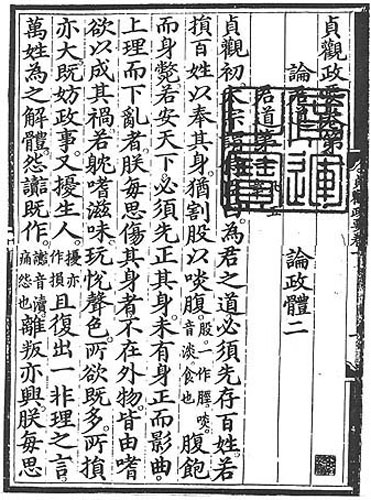 貞觀政要卷第
論君道 論政體二
君道第
貞觀初太宗謂侍臣曰為君之道必須先存百姓若
損百姓以奉其身猶割股以啖腹股一作脛啖音淡食也腹飽
而身斃若安天下必須先正其身未有身正而影曲
上理而下亂者朕每思傷其身者不在外物皆由嗜
欲以成其禍若躭嗜滋味玩悅聲色所欲既多所損
亦大既妨政事又擾生人擾亦作損且復出一非理之言
萬姓為之解體怨讟既作讟音瀆痛怨也離叛亦興朕每思